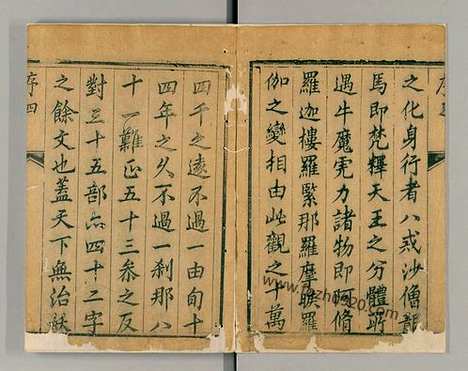 之化身行者八戒沙僧龍
馬即梵釋天王之分體所
遇牛魔虎力諸物即阿脩
羅迦樓羅緊那羅摩睺羅
伽之變相由此觀之十萬
四千之遠不過一由旬十
四年之久不過一剎那八
十一難正五十三參之反
對三十五部亦四十二字
之餘文也蓋天下無治妖
序四